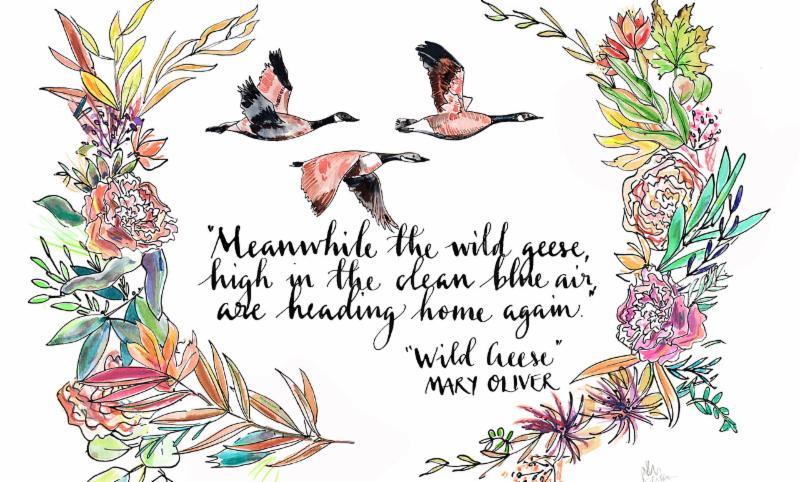 "Meanwhile the wild geese,
high in the clean blue air,
are heading home again."
"Wild Geese"
MARY OLIVER